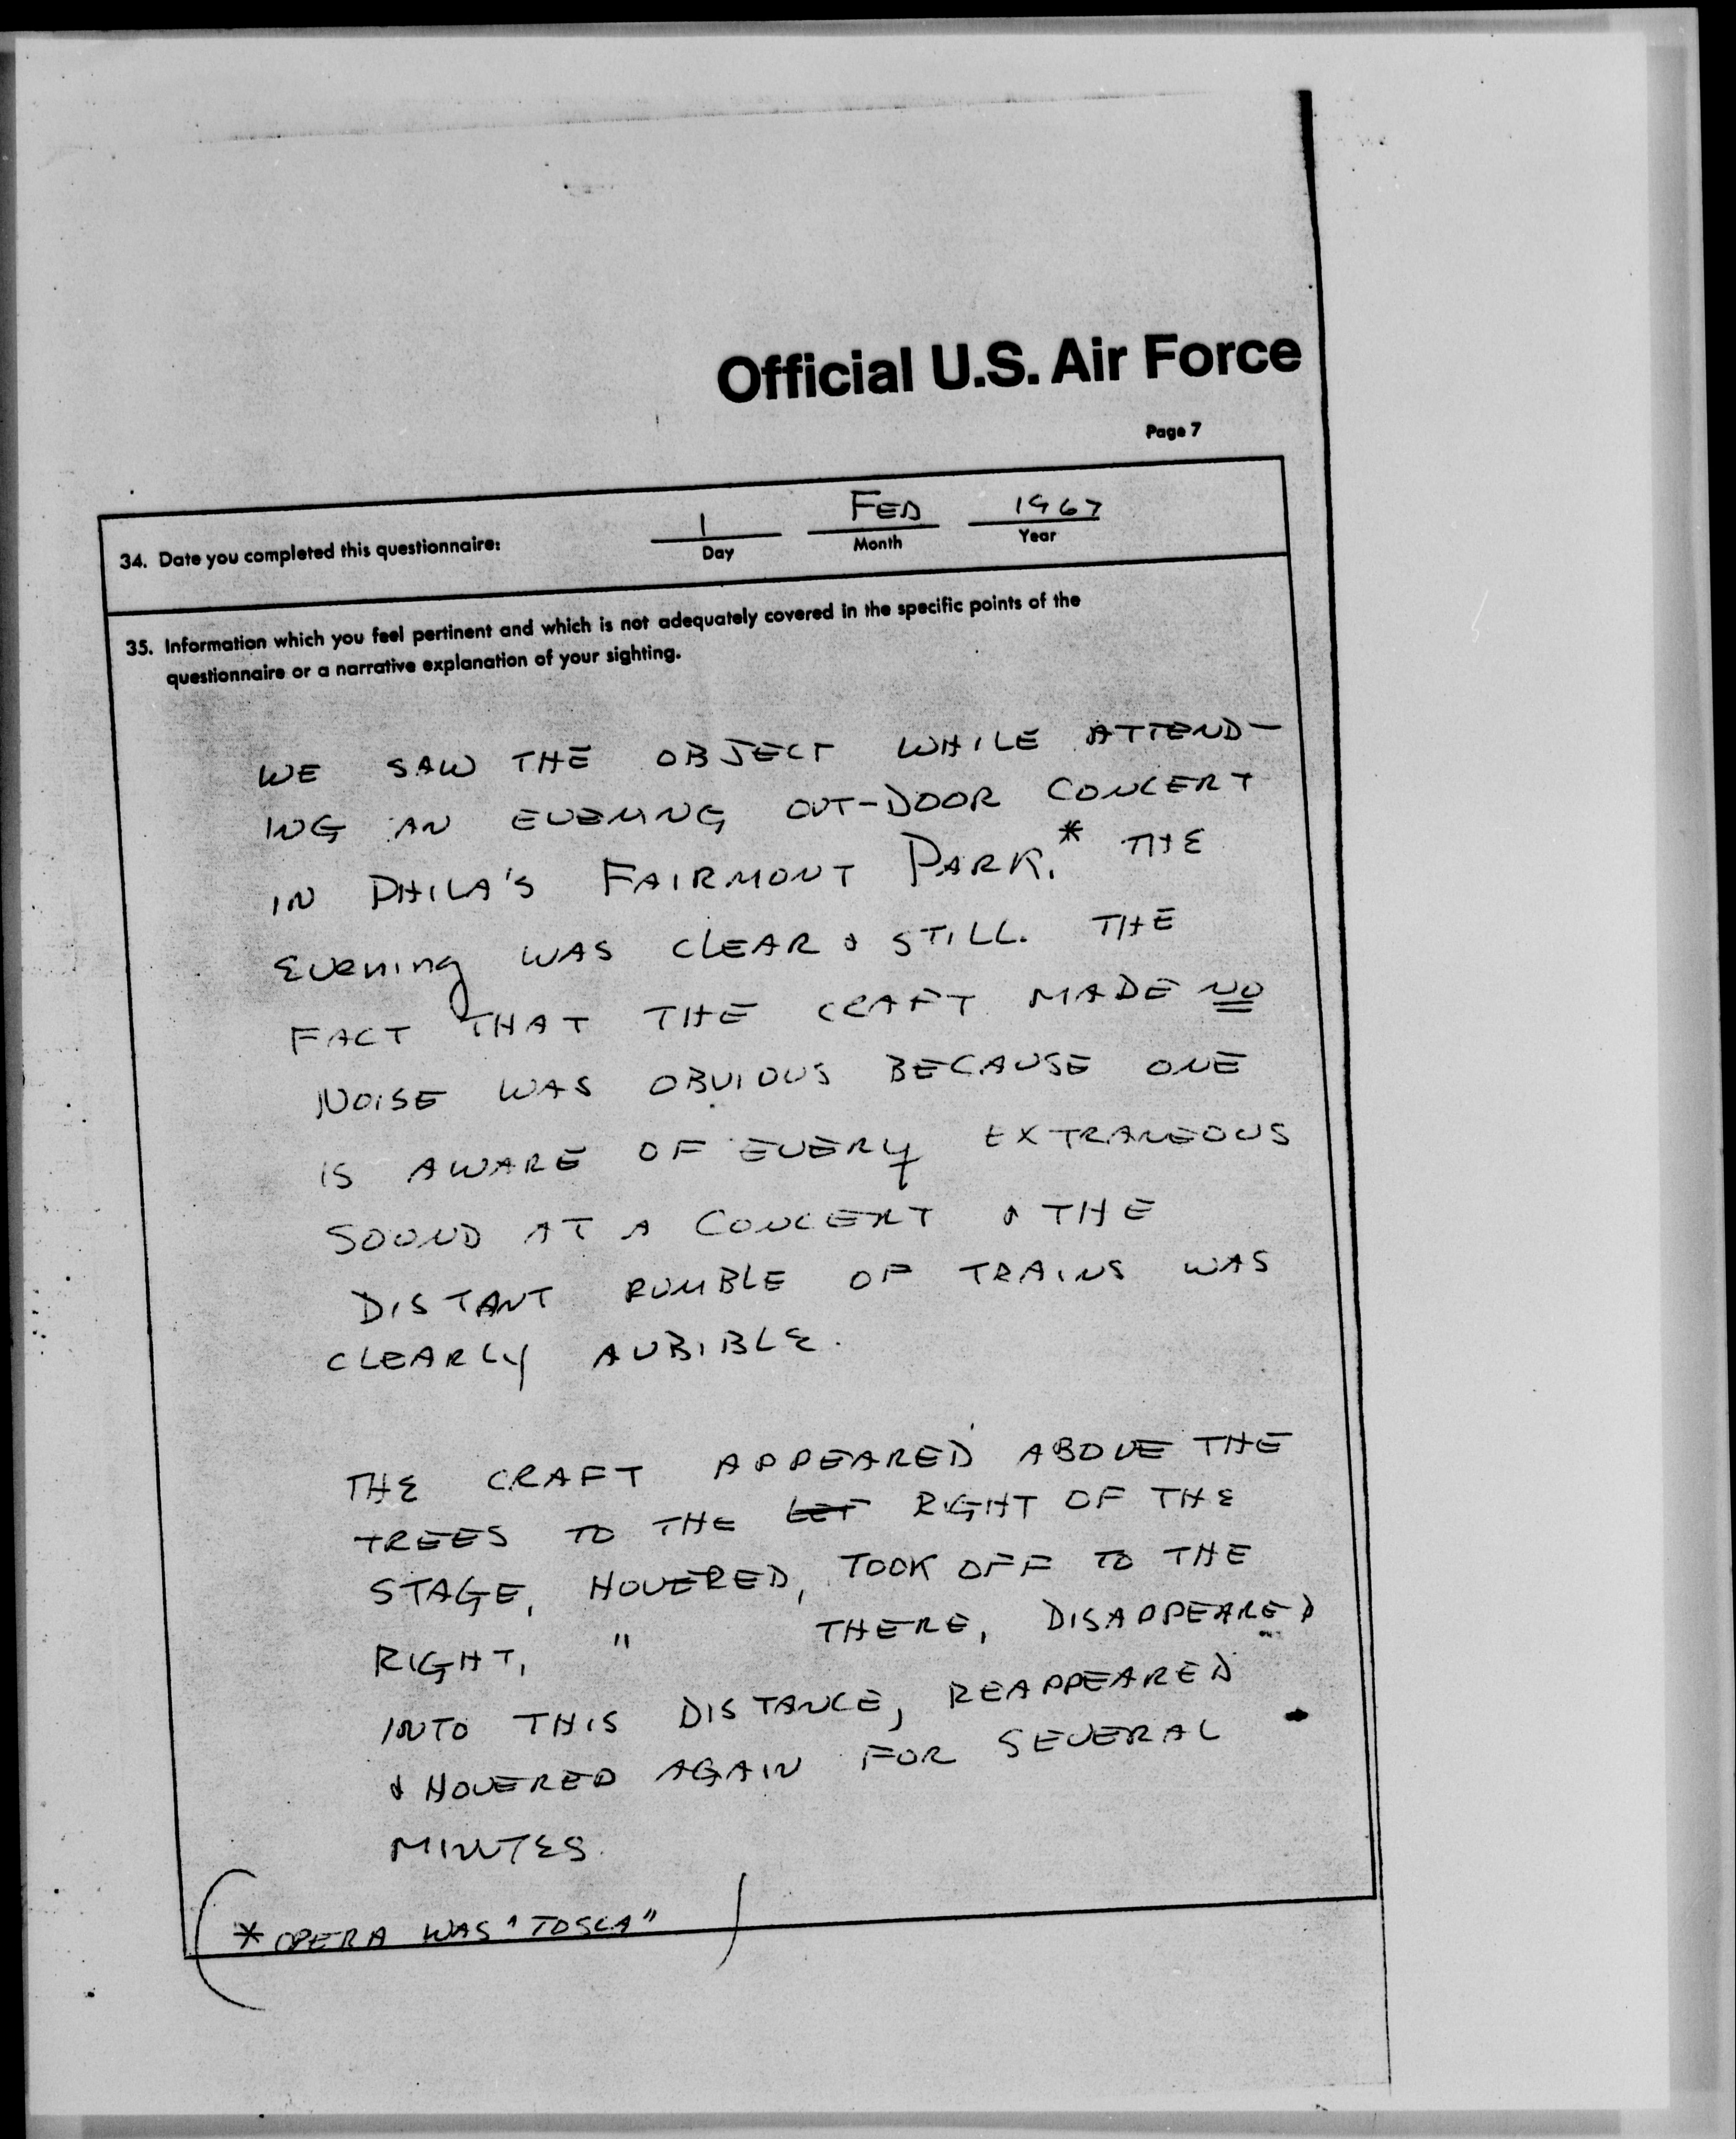 Official U.S. Air Force
Page 7
34. Date you completed this questionnaire:
1 FEB 1967
Day Month Year
35. Information which you feel pertinent and which is not adequately covered in the specific points of the
questionnaire or a narrative explanation of your sighting.
WE SAW THE OBJECT WHILE ATTEND-
ING AN EVENING OUT-DOOR CONCERT
IN PHILA'S FAIRMONT PARK.* THE
EVENING WAS CLEAR & STILL. THE
FACT THAT THE CRAFT MADE NO
NOISE WAS OBVIOUS BECAUSE ONE
IS AWARE OF EVERY EXTRANEOUS
SOUND AT A CONCERT & THE
DISTANT RUMBLE OF TRAINS WAS
CLEARLY AUBIBLE.
THE CRAFT APPEARED ABOVE THE
TREES TO THE LEF RIGHT OF THE
STAGE, HOVERED, TOOK OFF TO THE
RIGHT, " THERE, DISAPPEARED
INTO THIS DISTANCE, REAPPEARED
& HOVERED AGAIN FOR SEVERAL
MINUTES.
(* OPERA WAS "TOSCA")